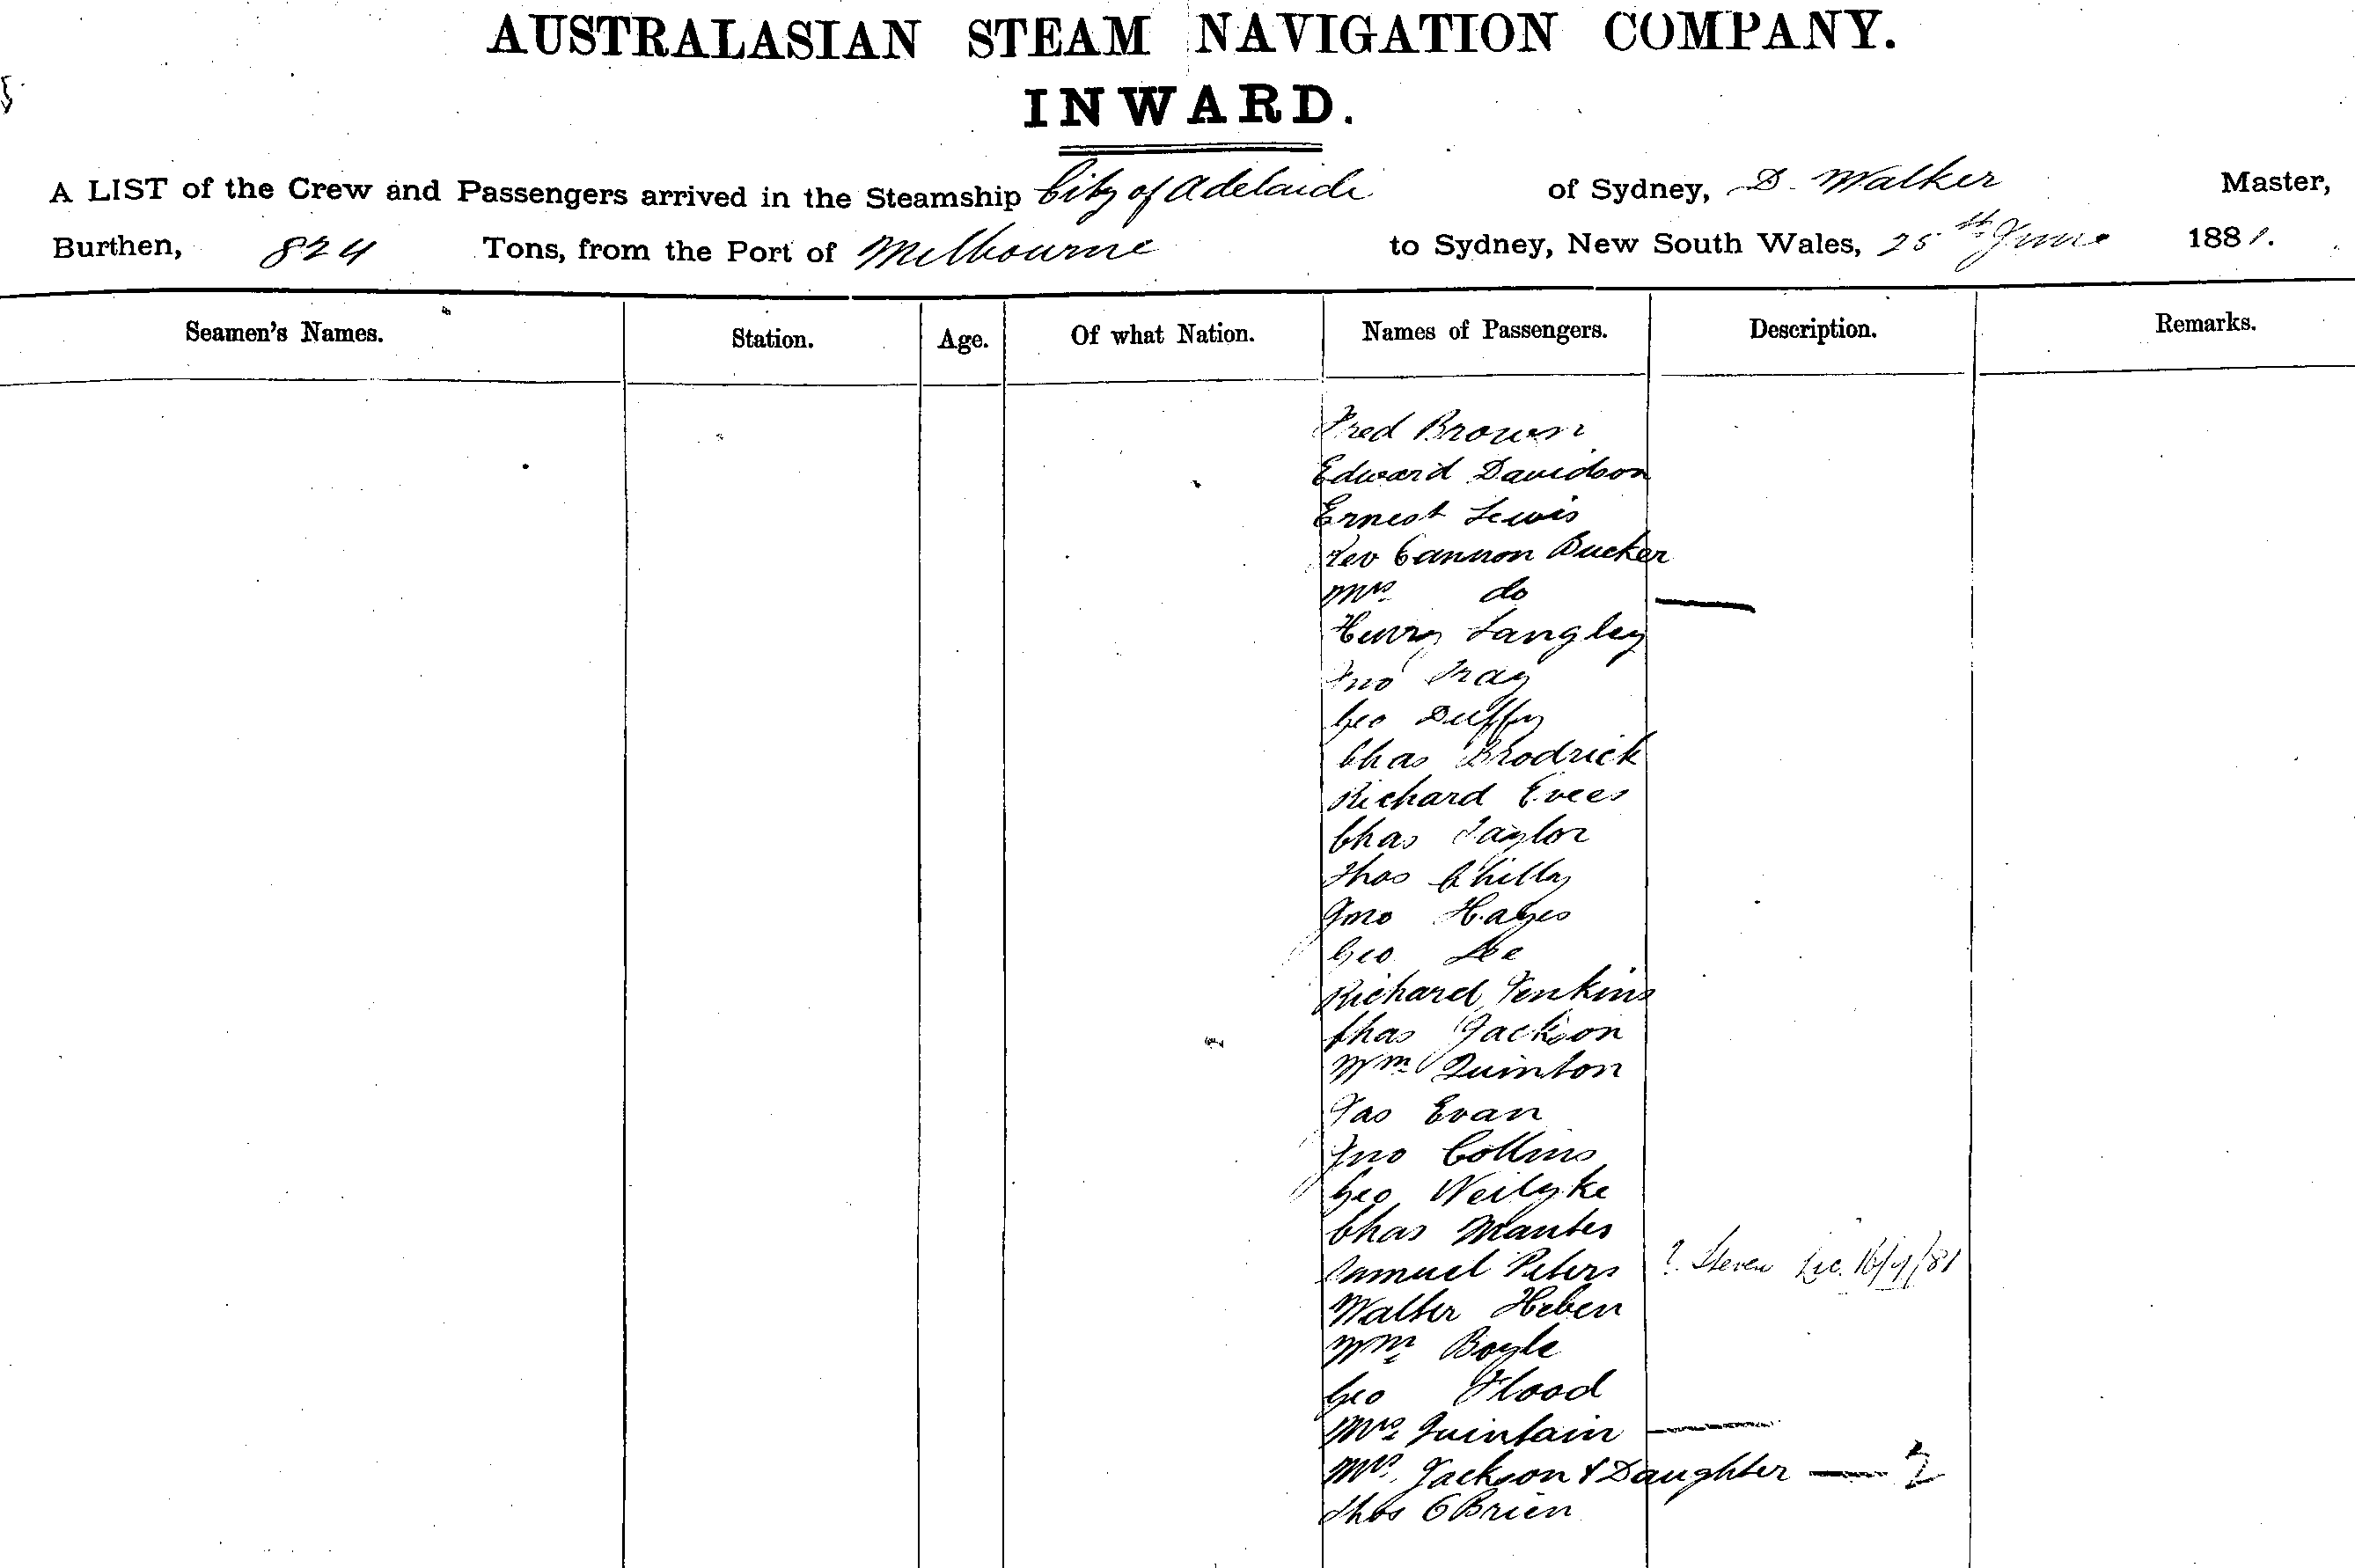 AUSTRALASIAN STEAM NAVIGATION COMPANY.
INWARD.
A LIST of the Crew and Passengers arrived in the Steamship City of Adelaide of Sydney, D. Walker Master,
Burthen, 824 Tons, from the Port of Melbourne to Sydney, New South Wales, 25th June 1881.
Seamen's Names. Station. Age. Of what Nation. Names of Passengers. Description. Remarks.
Fred Brown
Edward Davidson
Ernest Lewis
Rev Cannon Bucker
Mrs do
Henry Langley
Jno
Geo Duffy
Chas Brodrick
Richard Evees
Chas Taylor
Thos
Jno Hayes
Geo Lee
Richard Jenkins
Chas Jackson
Wm Quinton
Jas Evan
Jno Collins
Geo
Chas Mantes
Samuel Peters ? Steven
Walter Heben
Wm Boyle
Geo Flood
Mrs Quintain —
Mrs Jackson & Daughter — 2
Thos OBrien